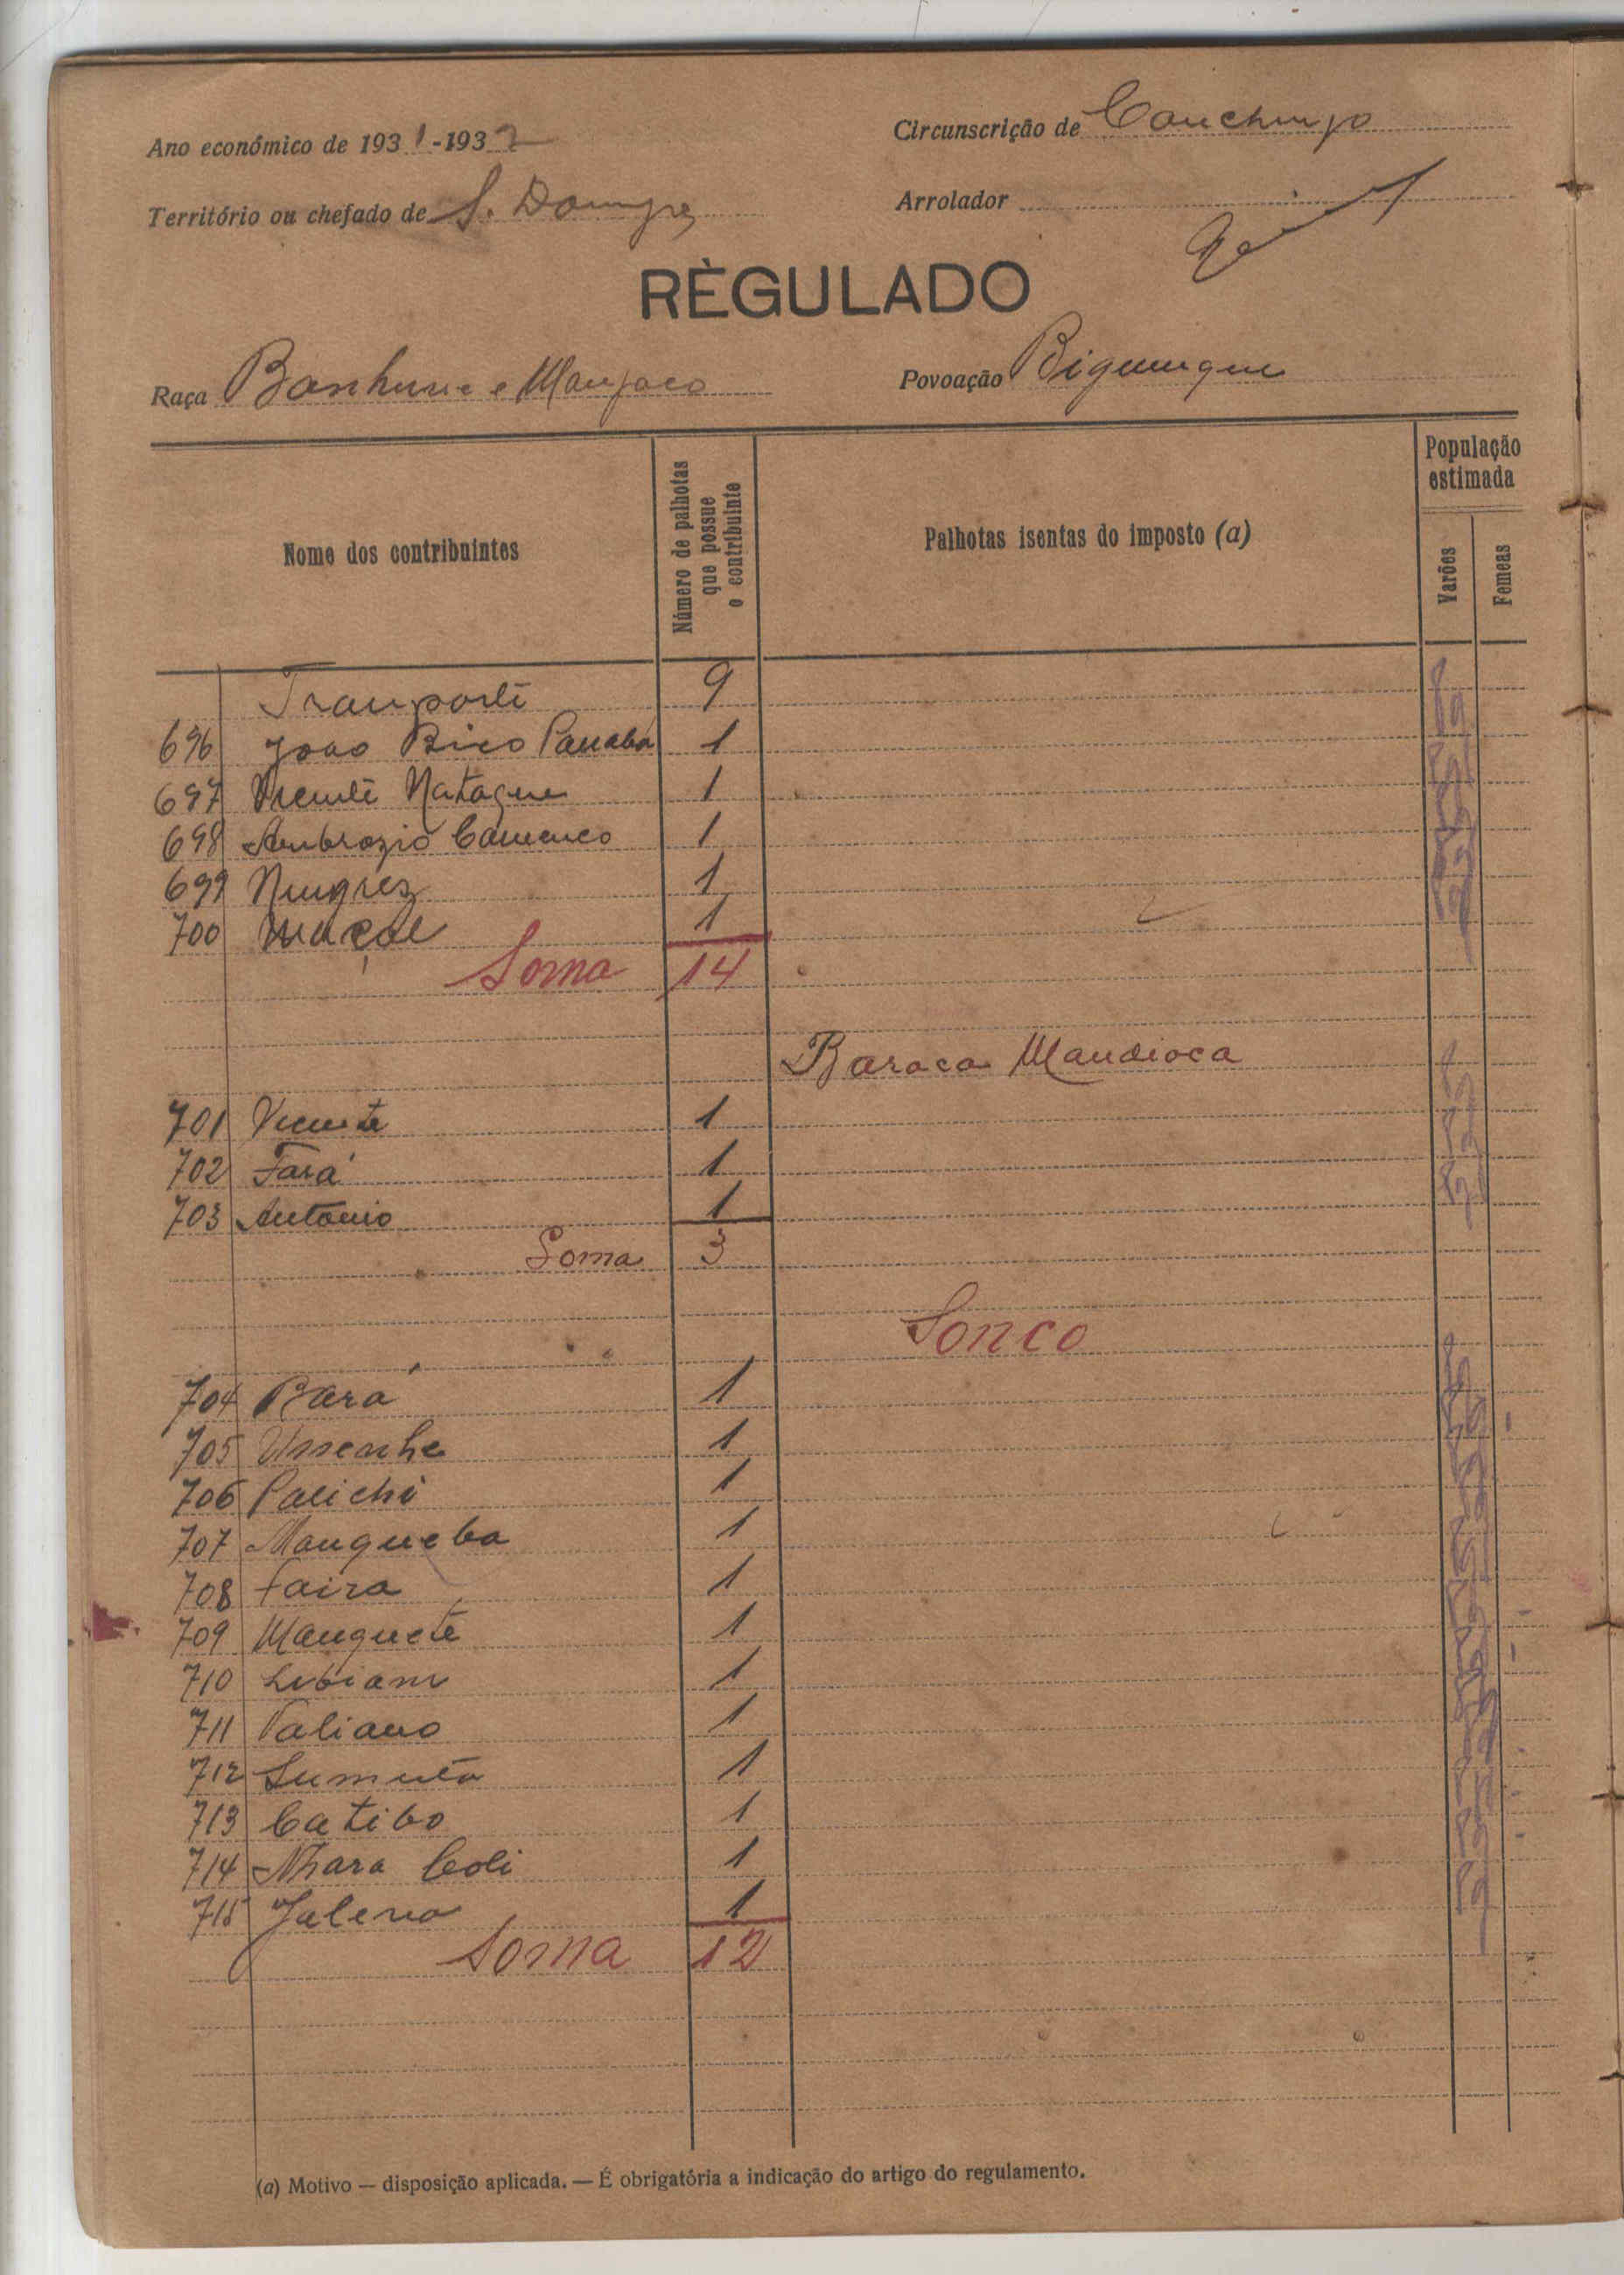 Ano económico de 1931-1932
Circunscrição de Canchungo
Território ou chefado de S. Domingos
Arrolador
RÈGULADO
Raça Banhune e Manjaco
Povoação
Nome dos contribuintes
Número de palhotas que possue o contribuinte
Palhotas isentas do imposto (a)
População estimada
Varões
Femeas
Transporte 9
696 João Bico 1
697 Vicente Natague 1
698 Ambrozio 1
699 1
700 1
Soma 14
Baraca Mandioca
701 Vicente 1
702 Fará 1
703 António 1
Soma 3
Sonco
704 Bara 1
705 Ussenhe 1
706 Palichi 1
707 Mangueba 1
708 Faira 1
709 Manguete 1
710 1
711 Valiano 1
712 1
713 Catibo 1
714 Nhara Coli 1
715 Jaleno 1
Soma 12
(a) Motivo — disposição aplicada. — É obrigatória a indicação do artigo do regulamento.